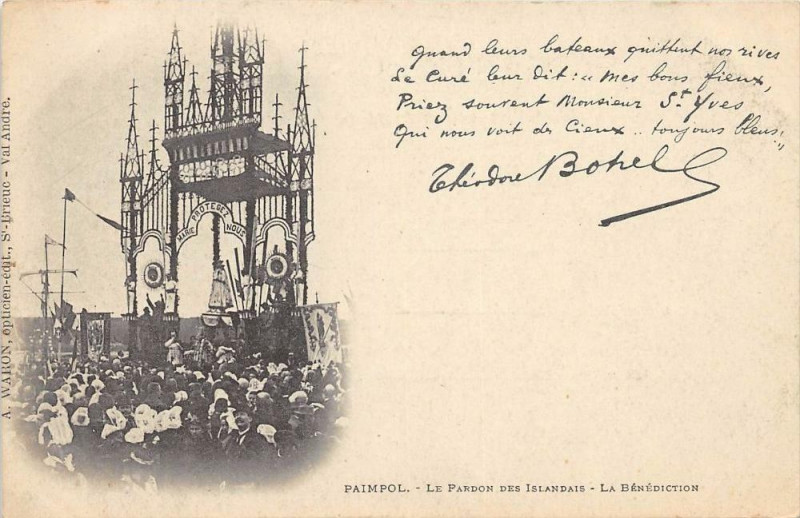 Quand leurs bateaux quittent nos rives
Le Curé leur dit : " Mes bons fieux,
Priez souvent Monsieur St Yves
Qui nous voit des Cieux .. toujours bleus "
Théodore Botrel
MARIE PROTEGEZ NOUS
A. WARON, opticien-édit., St-Brieuc - Val André.
PAIMPOL. - LE PARDON DES ISLANDAIS - LA BÉNÉDICTION